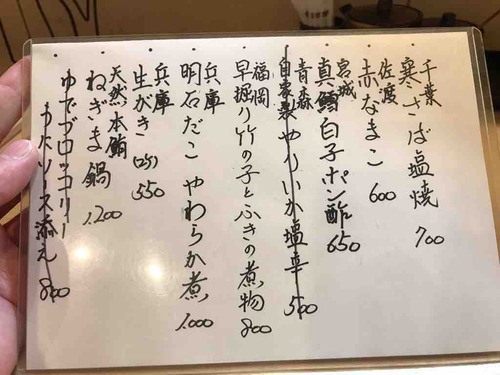 千葉
寒さば塩焼 700
佐渡
赤なまこ 600
宮城
真鱈白子ポン酢 650
青森
自家製やりいか塩辛 500
福岡
早掘り竹の子とふきの煮物 800
兵庫
明石だこ やわらか煮 1.000
兵庫
生がき (2ケ) 550
天然本鮪
ねぎま鍋 1.200
ゆでブロッコリー
うにソース添え 800